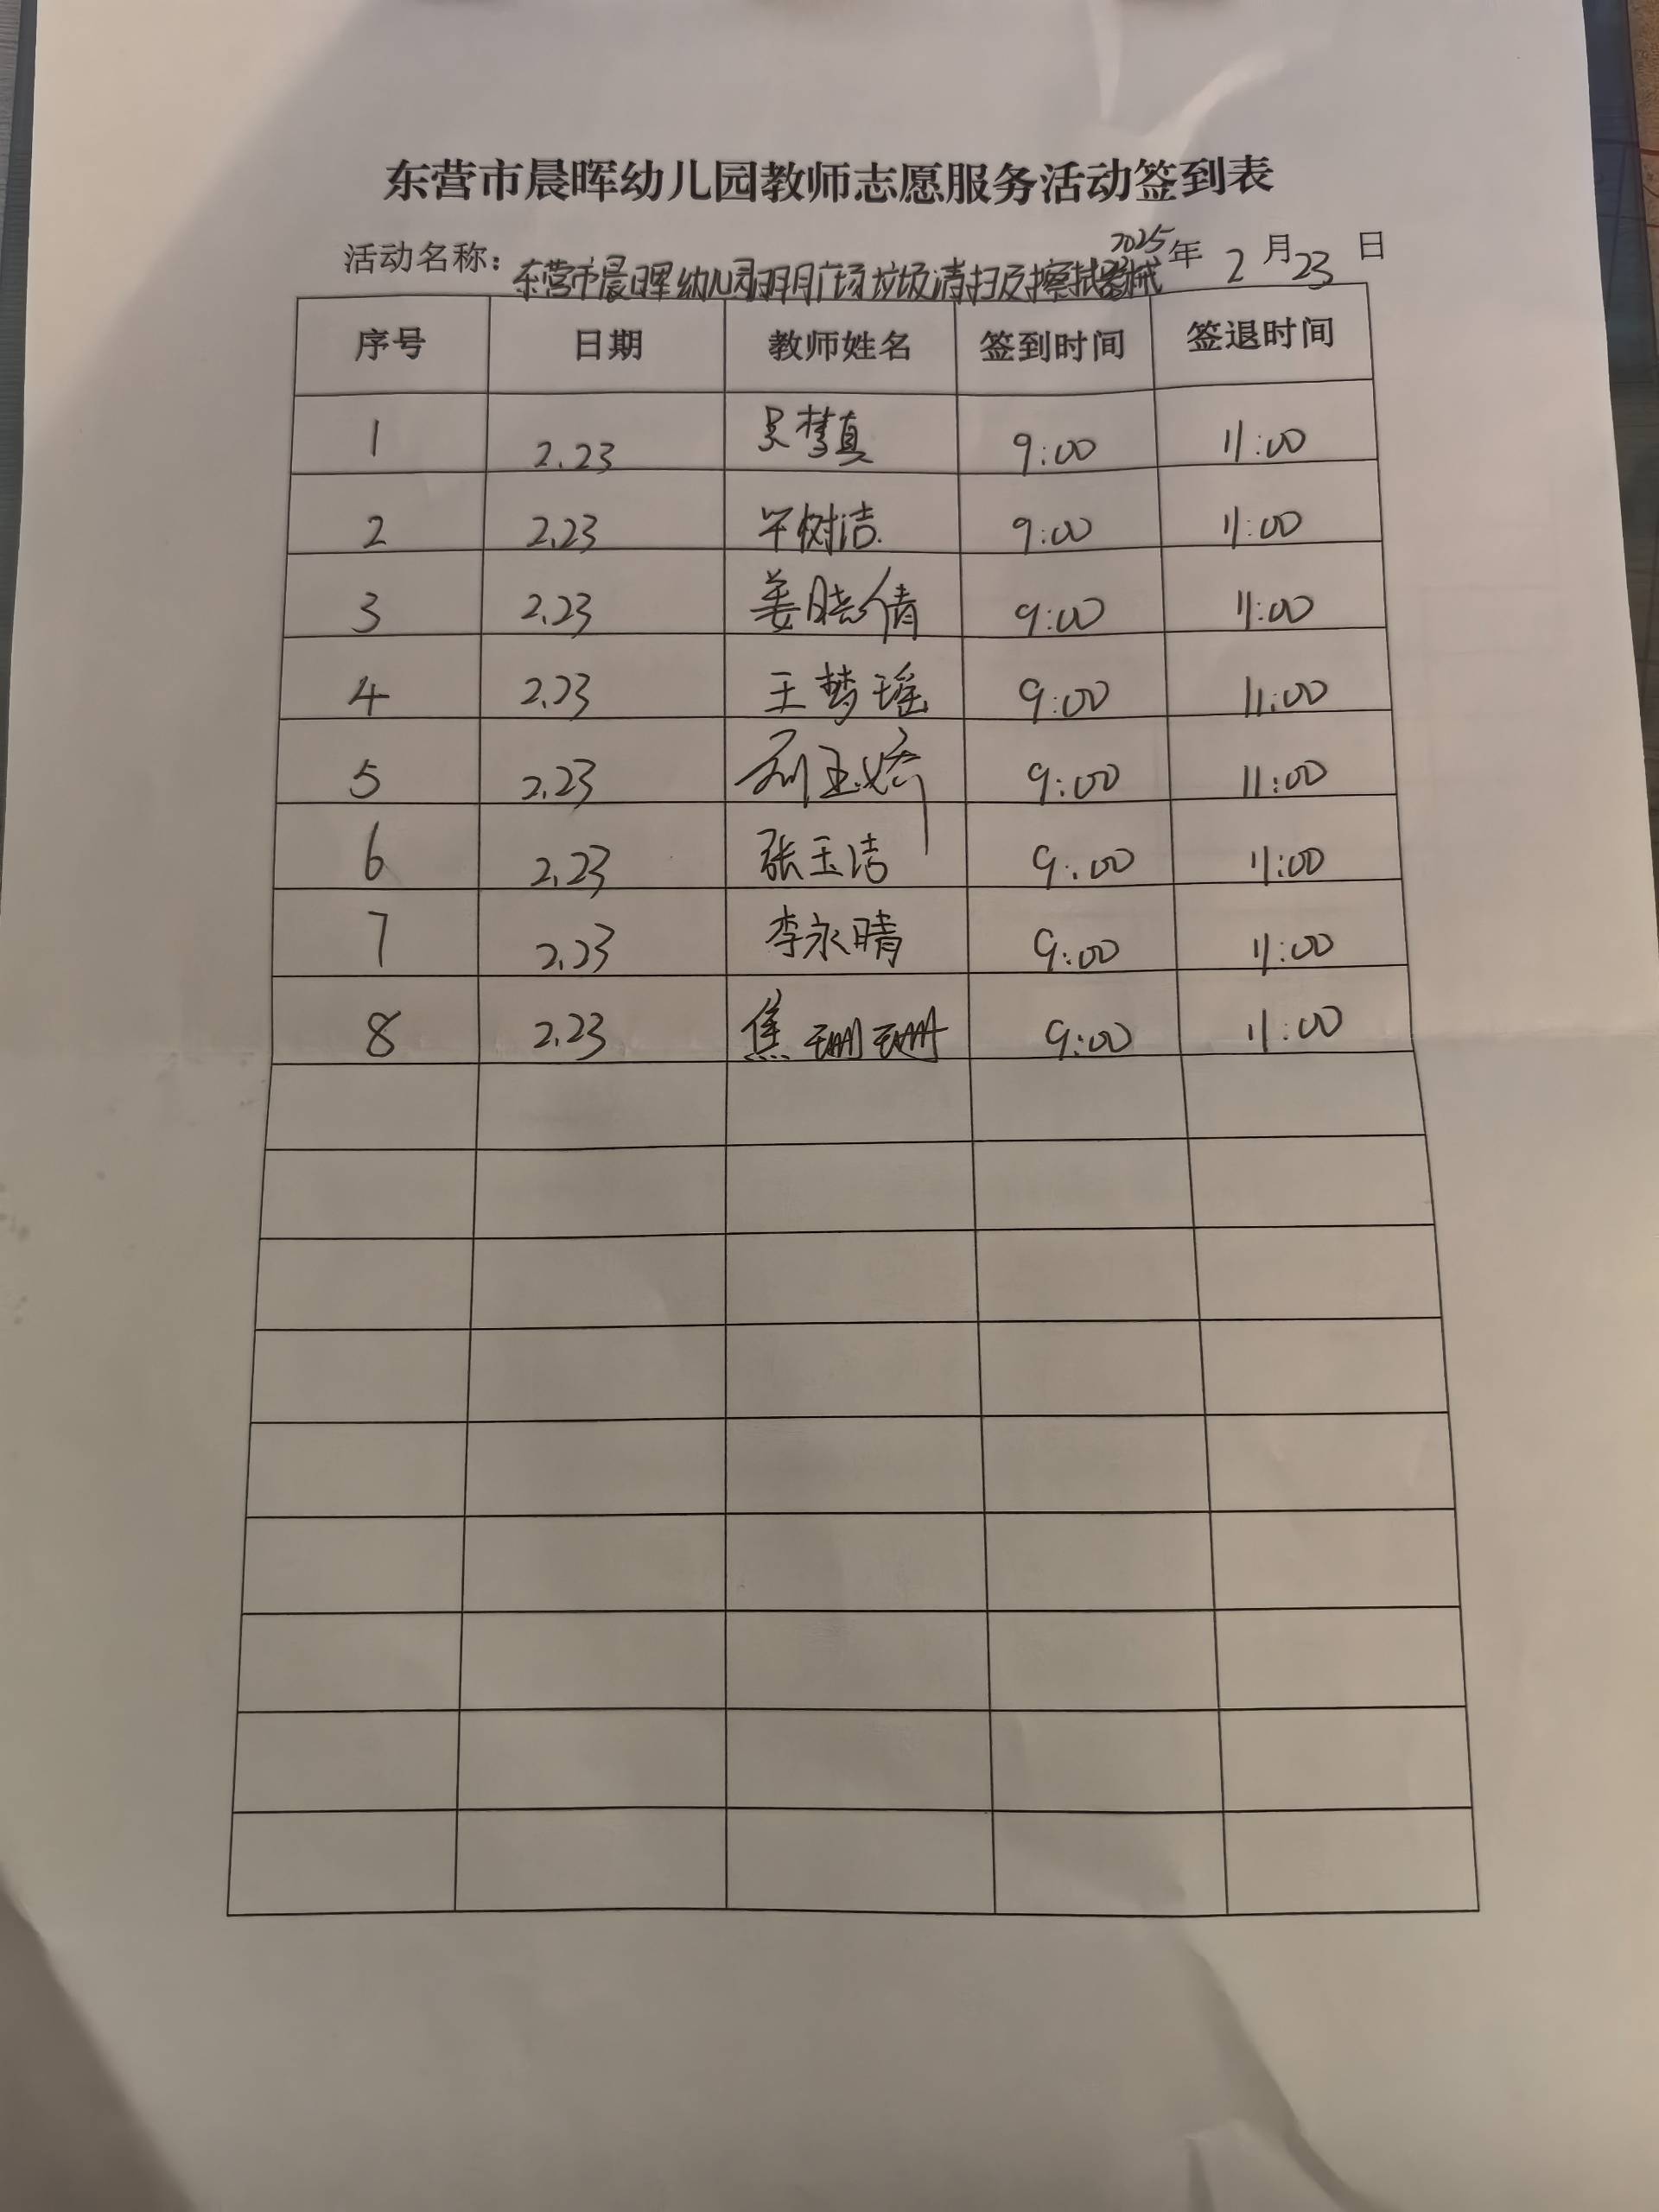 东营市晨晖幼儿园教师志愿服务活动签到表
活动名称：东营市晨晖幼儿园明月广场垃圾清扫及擦拭器械 2025年2月23日
序号 日期 教师姓名 签到时间 签退时间
1 2.23 吴梦真 9:00 11:00
2 2.23 树洁 9:00 11:00
3 2.23 姜晓倩 9:00 11:00
4 2.23 王梦瑶 9:00 11:00
5 2.23 刘玉娇 9:00 11:00
6 2.23 张玉洁 9:00 11:00
7 2.23 李永晴 9:00 11:00
8 2.23 焦珊珊 9:00 11:00